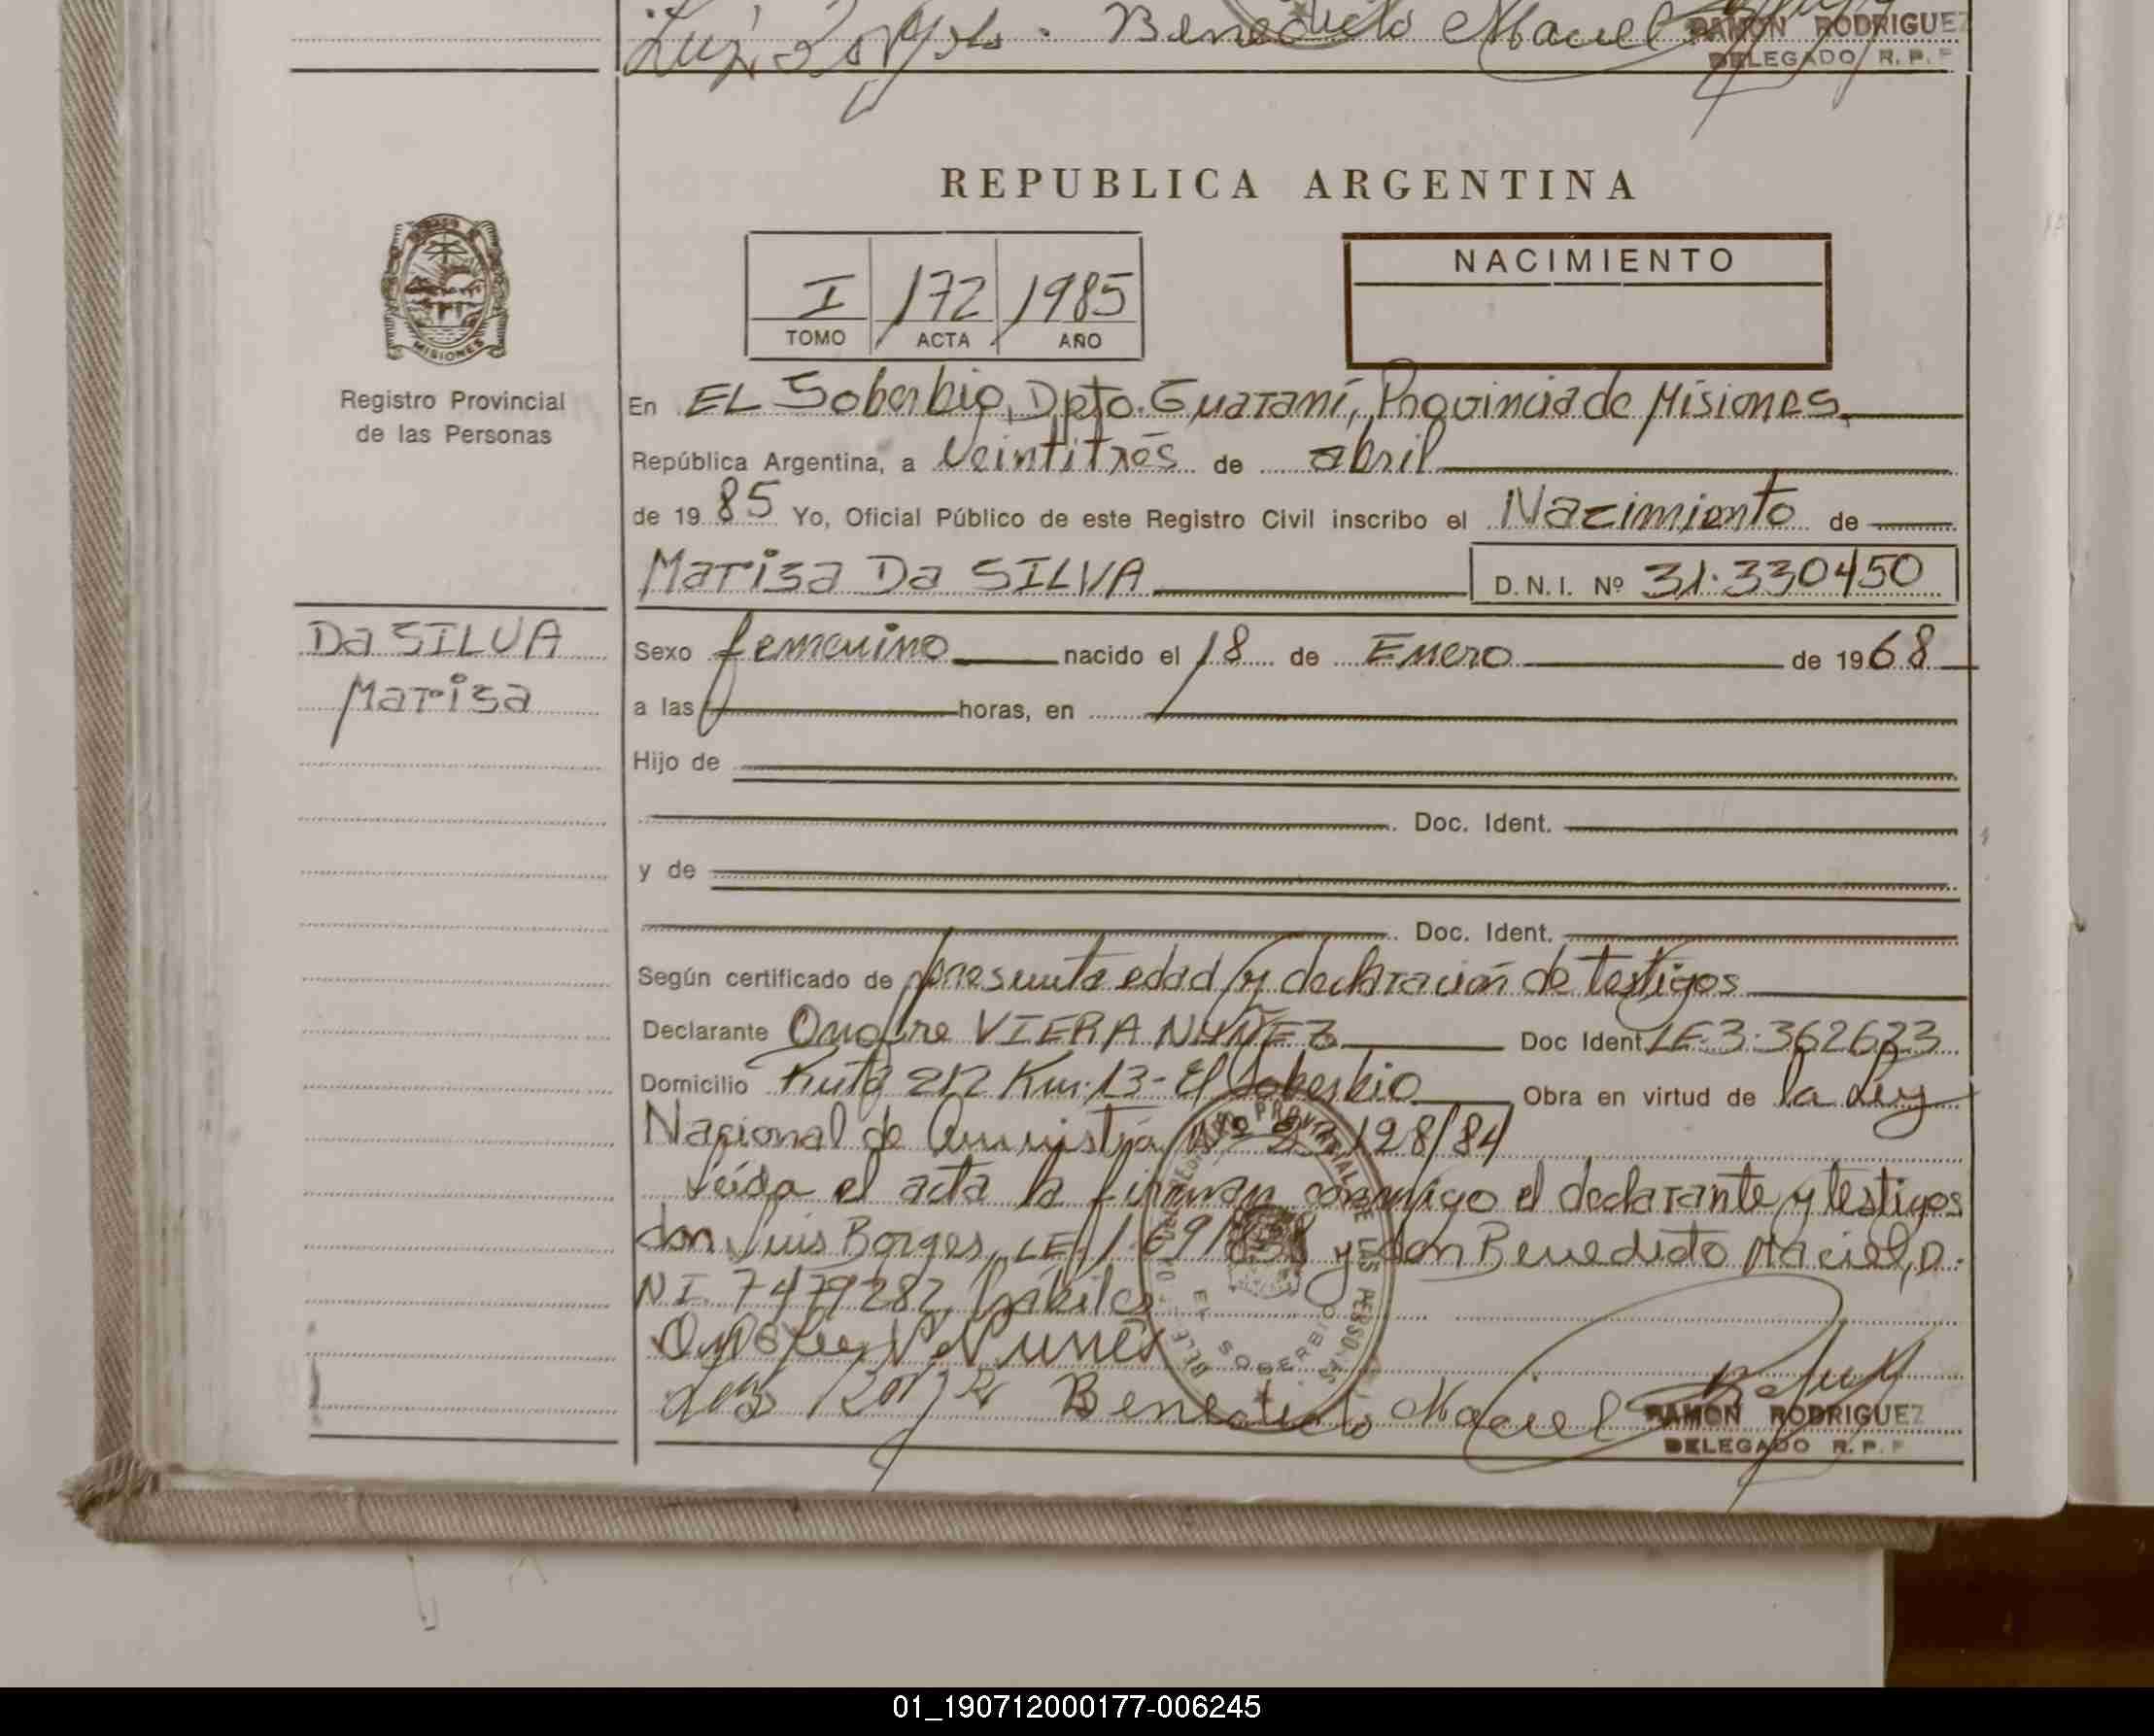 Benedicto Maciel
RAMON RODRIGUEZ
DELEGADO R. P.
REPUBLICA ARGENTINA
MISIONES
Registro Provincial
de las Personas
I 172 1985
TOMO ACTA AÑO
NACIMIENTO
En EL Soberbio, Dpto. Guaraní, Provincia de Misiones,
República Argentina, a veintitrés de abril
de 19 85 Yo, Oficial Público de este Registro Civil inscribo el Nacimiento de
Marisa Da SILVA D.N.I. Nº 31.330450
Da SILVA
Marisa
Sexo femenino nacido el 18 de Enero de 1968
a las horas, en
Hijo de
Doc. Ident.
y de
Doc. Ident.
Según certificado de presunta edad y declaración de testigos
Declarante Onofre VIERA NUÑEZ Doc Ident. LE.3.362623
Domicilio Ruta 212 Km.13- El Soberbio Obra en virtud de la Ley
Nacional de Amnistía Nº 23128/84
Leída el acta la firman conmigo el declarante y testigos
don Luis Borges, LE. y don Benedicto Maciel, D.
N I. 7479282, hábiles
Nunes
Benedicto Maciel
RAMON RODRIGUEZ
DELEGADO R. P.
EL SOBERBIO
01_190712000177-006245